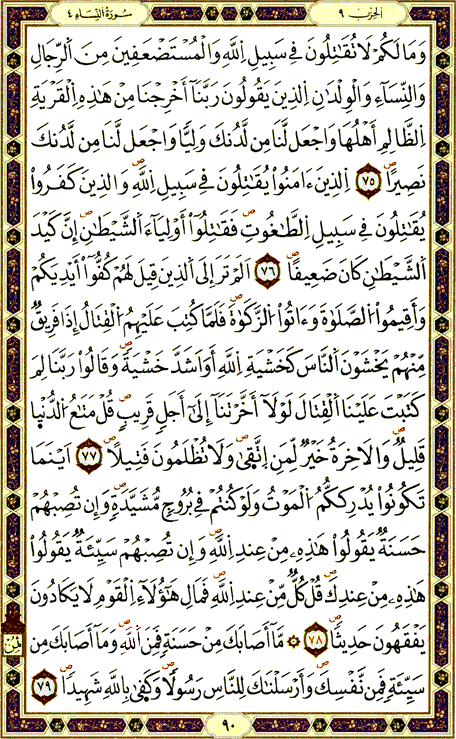 الحزب ٩
سورة النساء ٤
وَمَا لَكُمْ لَا تُقَٰتِلُونَ فِي سَبِيلِ اِ۬للَّهِ وَالْمُسْتَضْعَفِينَ مِنَ اَ۬لرِّجَالِ
وَالنِّسَآءِ وَالْوِلْدَٰنِ اِ۬لذِينَ يَقُولُونَ رَبَّنَآ أَخْرِجْنَا مِنْ هَٰذِهِ اِ۬لْقَرْيَةِ
اِ۬لظَّالِمِ أَهْلُهَا وَاجْعَل لَّنَا مِن لَّدُنكَ وَلِيّٗا وَاجْعَل لَّنَا مِن لَّدُنكَ
نَصِيراًۖ ٧٥ اَ۬لذِينَ ءَامَنُواْ يُقَٰتِلُونَ فِي سَبِيلِ اِ۬للَّهِۖ وَالذِينَ كَفَرُواْ
يُقَٰتِلُونَ فِي سَبِيلِ اِ۬لطَّٰغُوتِۖ فَقَٰتِلُوٓاْ أَوْلِيَآءَ اَ۬لشَّيْطَٰنِۖ إِنَّ كَيْدَ
اَ۬لشَّيْطَٰنِ كَانَ ضَعِيفاًۖ ٧٦ اَلَمْ تَرَ إِلَى اَ۬لذِينَ قِيلَ لَهُمْ كُفُّوٓاْ أَيْدِيَكُمْ
وَأَقِيمُواْ اُ۬لصَّلَوٰةَ وَءَاتُواْ اُ۬لزَّكَوٰةَۖ فَلَمَّا كُتِبَ عَلَيْهِمُ اُ۬لْقِتَالُ إِذَا فَرِيقٞ
مِّنْهُمْ يَخْشَوْنَ اَ۬لنَّاسَ كَخَشْيَةِ اِ۬للَّهِ أَوَ اَشَدَّ خَشْيَةٗۖ وَقَالُواْ رَبَّنَا لِمَ
كَتَبْتَ عَلَيْنَا اَ۬لْقِتَالَ لَوْلَآ أَخَّرْتَنَآ إِلَىٰٓ أَجَلٖ قَرِيبٖۖ قُلْ مَتَٰعُ اُ۬لدُّنْيَا
قَلِيلٞۖ وَالَاخِرَةُ خَيْرٞ لِّمَنِ اِ۪تَّقَىٰۖ وَلَا تُظْلَمُونَ فَتِيلاًۖ ٧٧ اَيْنَمَا
تَكُونُواْ يُدْرِككُّمُ اُ۬لْمَوْتُ وَلَوْ كُنتُمْ فِي بُرُوجٖ مُّشَيَّدَةٖۖ وَإِن تُصِبْهُمْ
حَسَنَةٞ يَقُولُواْ هَٰذِهِۦ مِنْ عِندِ اِ۬للَّهِۖ وَإِن تُصِبْهُمْ سَيِّئَةٞ يَقُولُواْ
هَٰذِهِۦ مِنْ عِندِكَۖ قُلْ كُلّٞ مِّنْ عِندِ اِ۬للَّهِۖ فَمَالِ هَٰٓؤُلَآءِ اِ۬لْقَوْمِ لَا يَكَادُونَ
يَفْقَهُونَ حَدِيثاٗۖ ٧٨ ۞ مَّآ أَصَابَكَ مِنْ حَسَنَةٖ فَمِنَ اَ۬للَّهِۖ وَمَآ أَصَابَكَ مِن
سَيِّئَةٖ فَمِن نَّفْسِكَۖ وَأَرْسَلْنَٰكَ لِلنَّاسِ رَسُولاٗۖ وَكَفَىٰ بِاللَّهِ شَهِيداٗۖ ٧٩
ثمن
٩٠